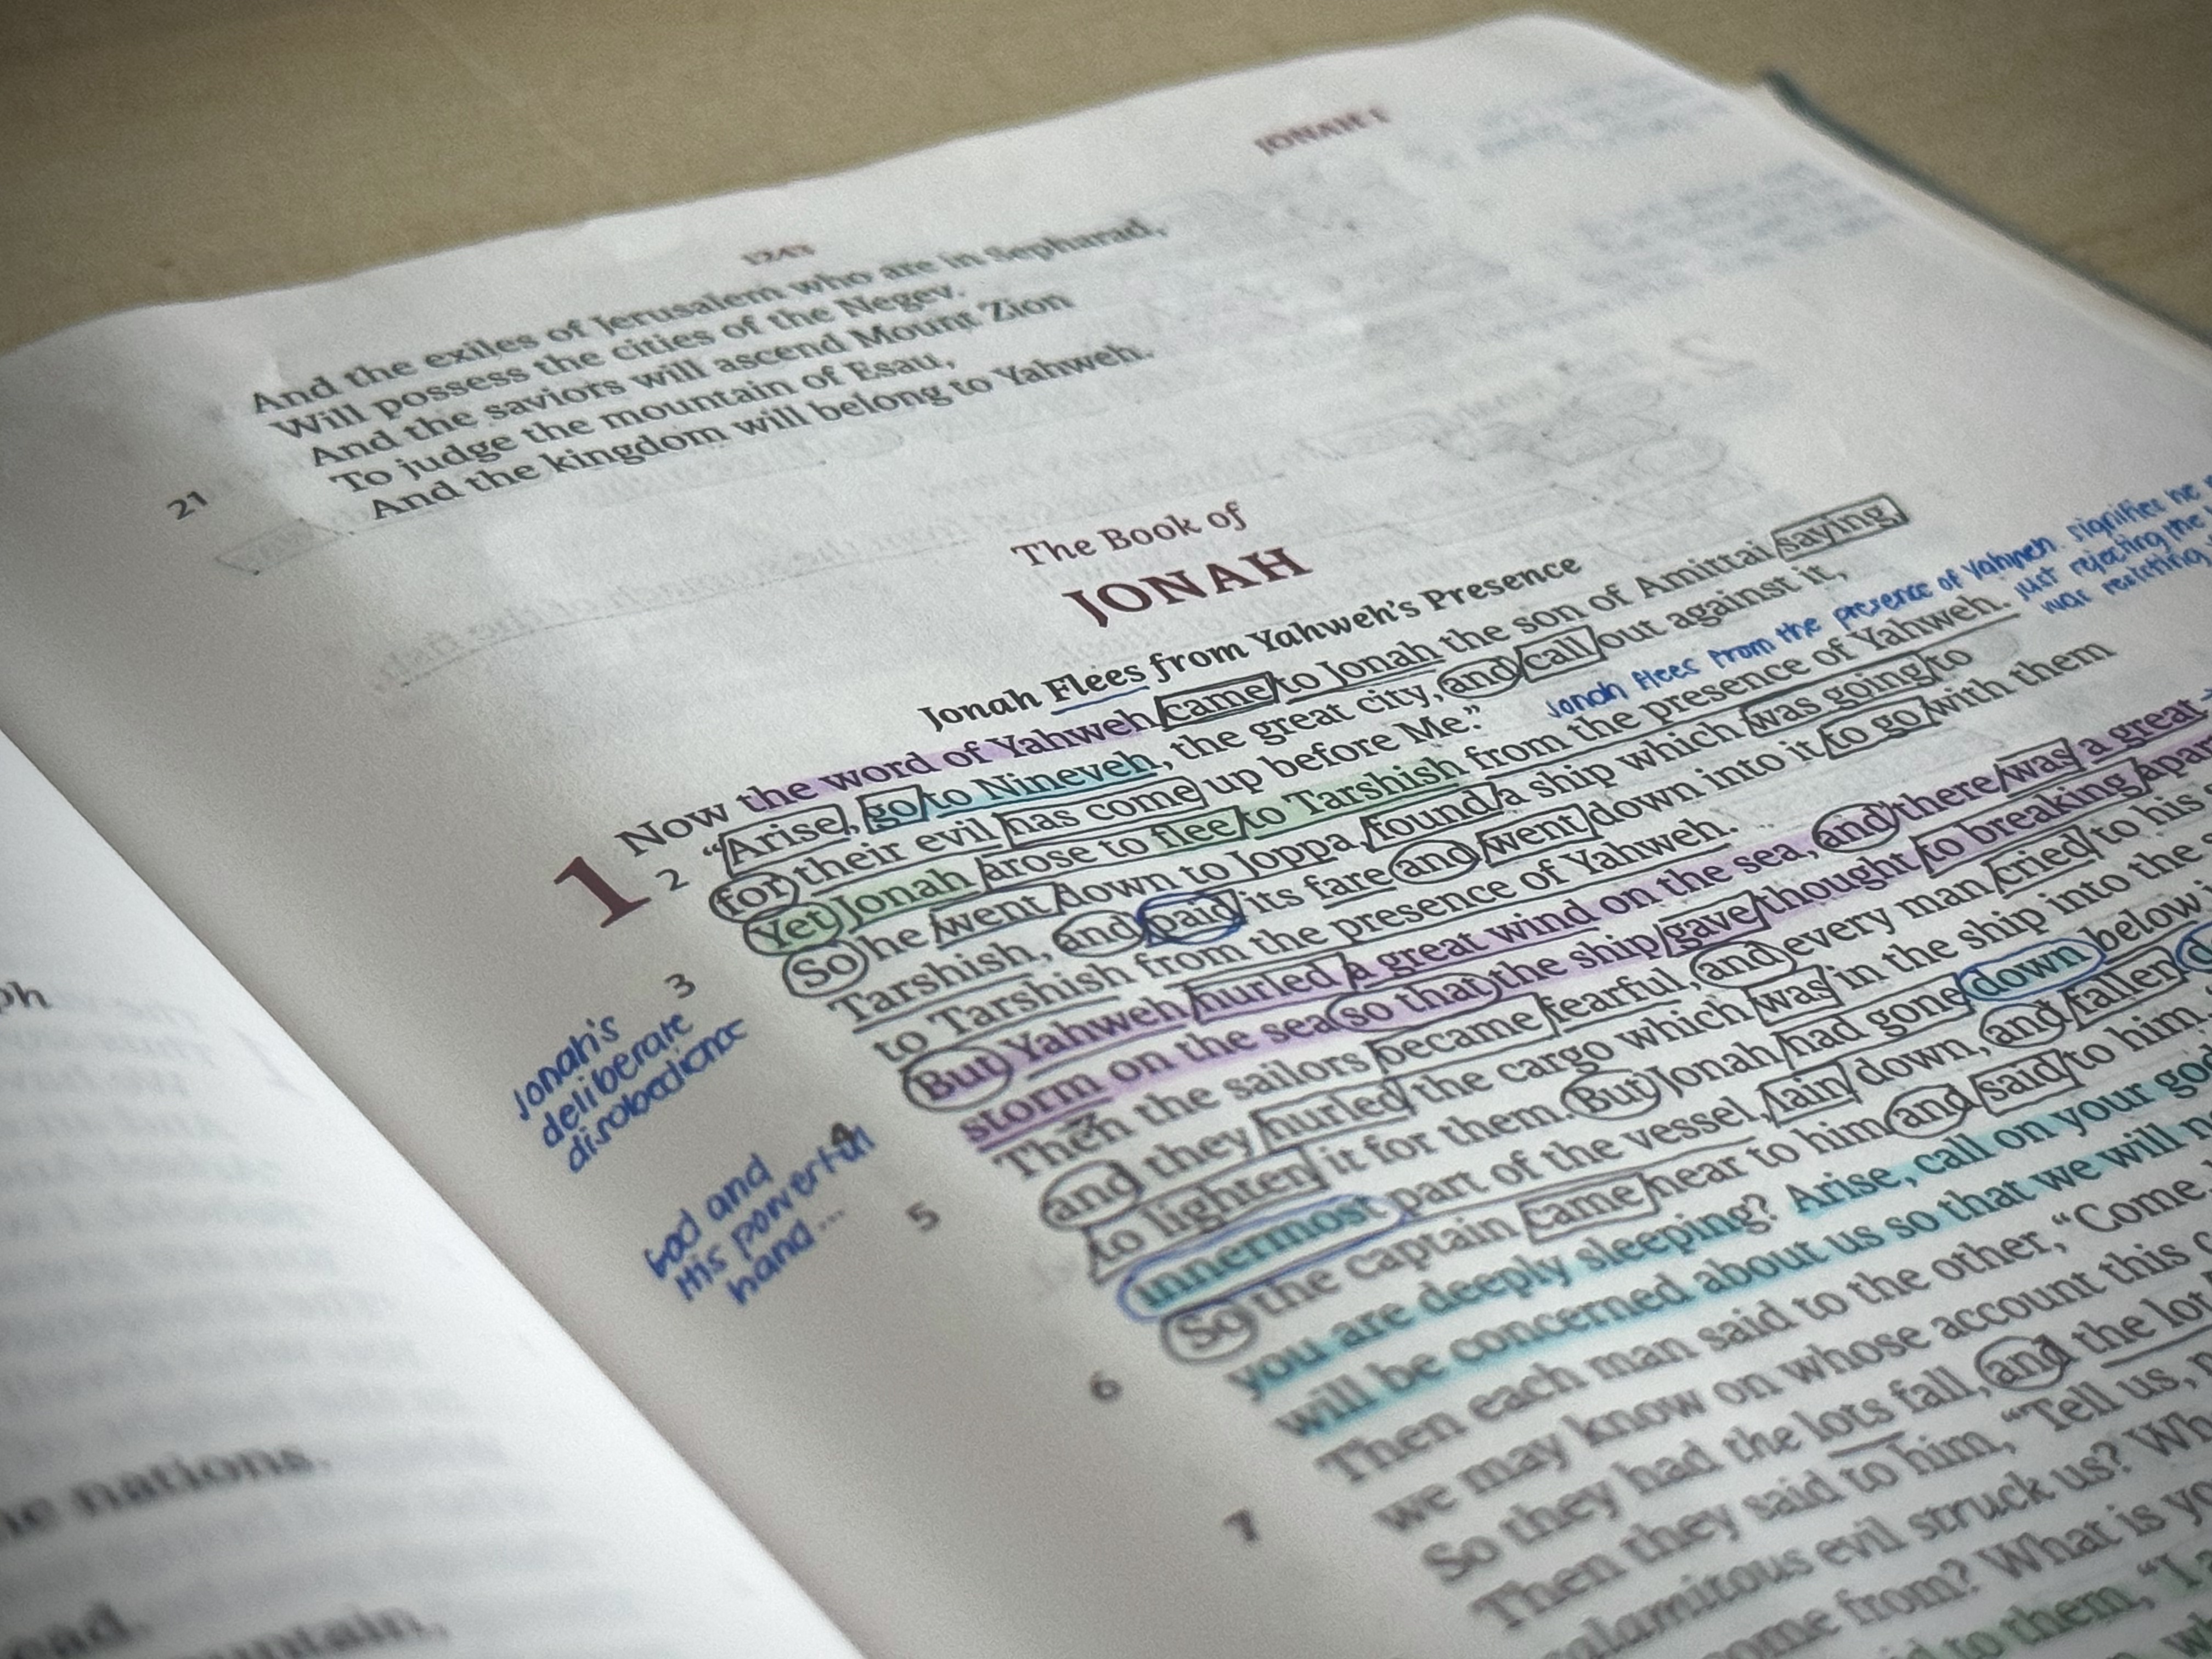 JONAH 1
1243
And the exiles of Jerusalem who are in Sepharad,
Will possess the cities of the Negev.
21 And the saviors will ascend Mount Zion
To judge the mountain of Esau,
And the kingdom will belong to Yahweh.
The Book of
JONAH
Jonah Flees from Yahweh's Presence
1 Now the word of Yahweh came to Jonah the son of Amittai saying,
2 “Arise, go to Nineveh, the great city, and call out against it,
for their evil has come up before Me.”
Jonah flees from the presence of Yahweh. signifies he
just rejecting the
was resisting
3 Yet Jonah arose to flee to Tarshish from the presence of Yahweh.
So he went down to Joppa, found a ship which was going to
Tarshish, and paid its fare and went down into it to go with them
to Tarshish from the presence of Yahweh.
Jonah's
deliberate
disobedience
4 But Yahweh hurled a great wind on the sea, and there was a great
storm on the sea so that the ship gave thought to breaking apart
God and
His powerful
hand...
5 Then the sailors became fearful, and every man cried to his
and they hurled the cargo which was in the ship into the
to lighten it for them. But Jonah had gone down below
innermost part of the vessel, lain down, and fallen
6 So the captain came near to him and said to him,
you are deeply sleeping? Arise, call on your god
will be concerned about us so that we will
7 Then each man said to the other, “Come,
we may know on whose account this
So they had the lots fall, and the lot
Then they said to him, “Tell us,
calamitous evil struck us?
come from? What is
said to them, “I
ph
the nations.